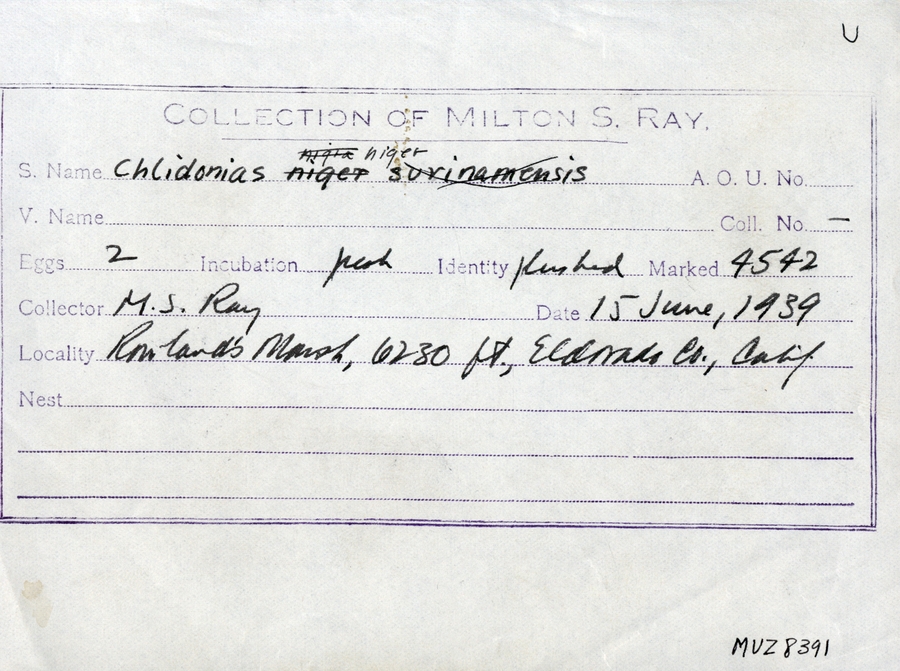 U
COLLECTION OF MILTON S. RAY.
nigra niger
S. Name Chlidonias niger surinamensis A. O. U. No.
V. Name Coll. No. —
Eggs 2 Incubation fresh Identity flushed Marked 4542
Collector M.S. Ray Date 15 June, 1939
Locality Rowland's Marsh, 6230 ft., Eldorado Co., Calif.
Nest
MUZ 8391